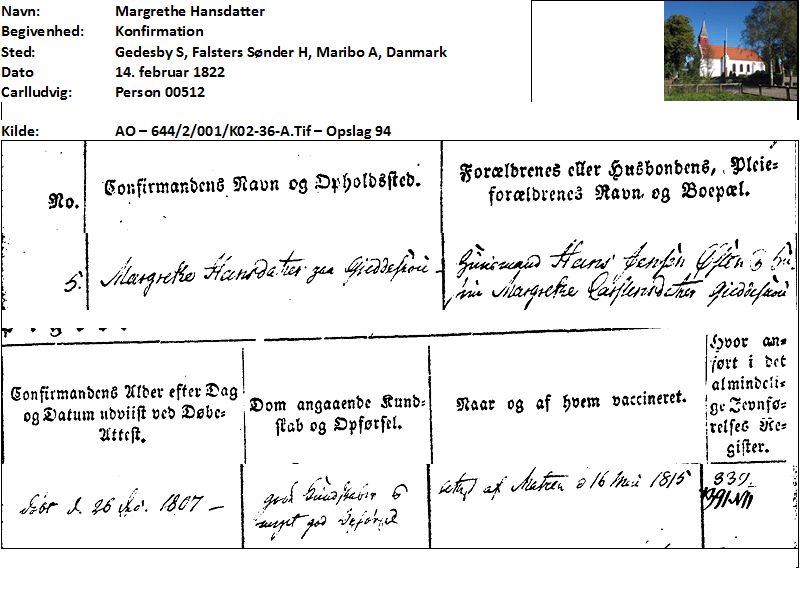 Navn: Margrethe Hansdatter
Begivenhed: Konfirmation
Sted: Gedesby S, Falsters Sønder H, Maribo A, Danmark
Dato 14. februar 1822
Carlludvig: Person 00512
Kilde: AO – 644/2/001/K02-36-A.Tif – Opslag 94
No.
Confirmandens Navn og Opholdssted.
Forældrenes eller Husbondens, Pleie-
forældrenes Navn og Boepæl.
5.
Margrethe Hansdatter
Huusmand Hans Jensen
Margrethe Carstensdatter
Confirmandens Alder efter Dag
og Datum udviist ved Døbe-
Attest.
Dom angaaende Kund-
skab og Opførsel.
Naar og af hvem vaccineret.
Hvor an-
ført i det
almindeli-
ge Jevnfø-
relses Re-
gister.
d. 26 1807 –
god Kundskaber
meget god Opførsel
af d 16 Mai 1815